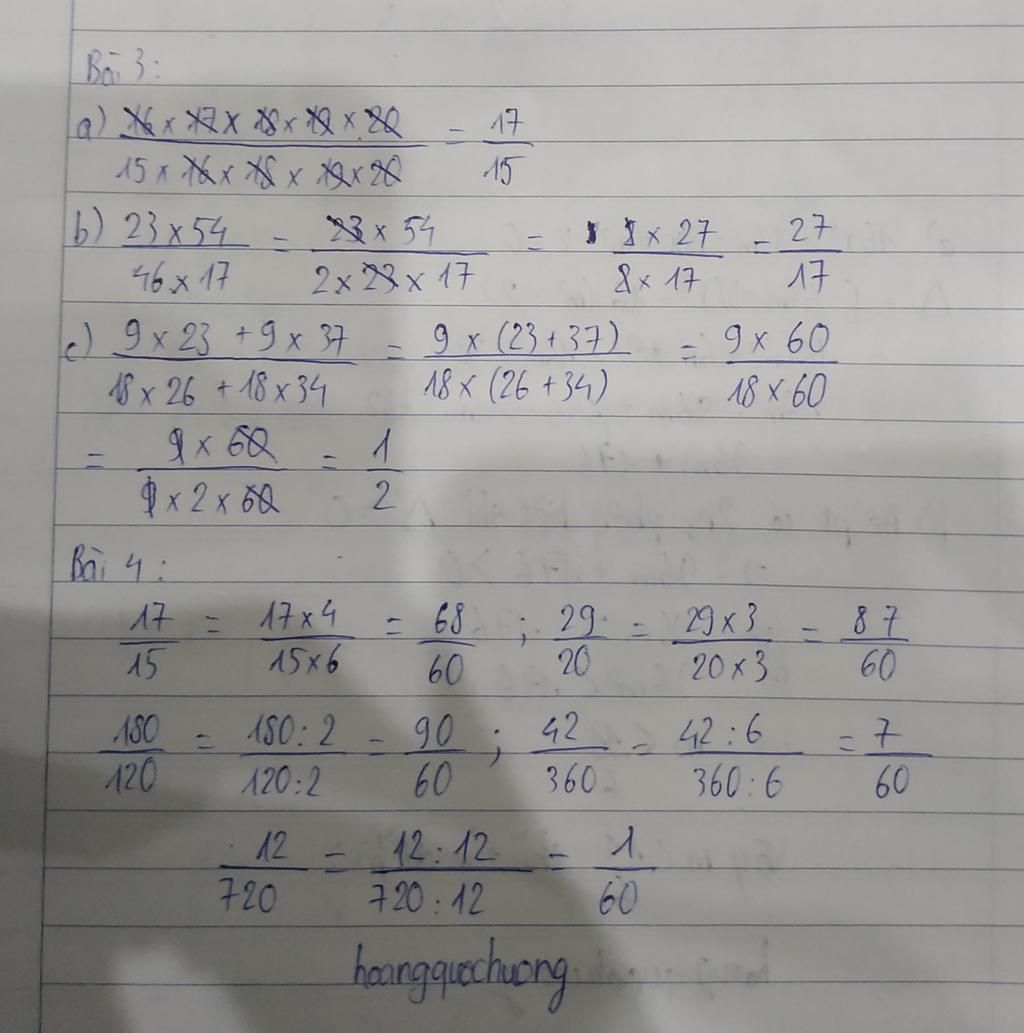 Bài 3:
a) 16 x 17 x 18 x 19 x 20 / 15 x 16 x 18 x 19 x 20 = 17 / 15
b) 23 x 54 / 46 x 17 = 23 x 54 / 2 x 23 x 17 = 1 x 27 / 8 x 17 = 27 / 17
c) 9 x 23 + 9 x 37 / 18 x 26 + 18 x 34 = 9 x (23 + 37) / 18 x (26 + 34) = 9 x 60 / 18 x 60
= 9 x 60 / 9 x 2 x 60 = 1 / 2
Bài 4:
17 / 15 = 17 x 4 / 15 x 6 = 68 / 60 ; 29 / 20 = 29 x 3 / 20 x 3 = 87 / 60
180 / 120 = 180 : 2 / 120 : 2 = 90 / 60 ; 42 / 360 = 42 : 6 / 360 : 6 = 7 / 60
12 / 720 = 12 : 12 / 720 : 12 = 1 / 60
hoangquochuong